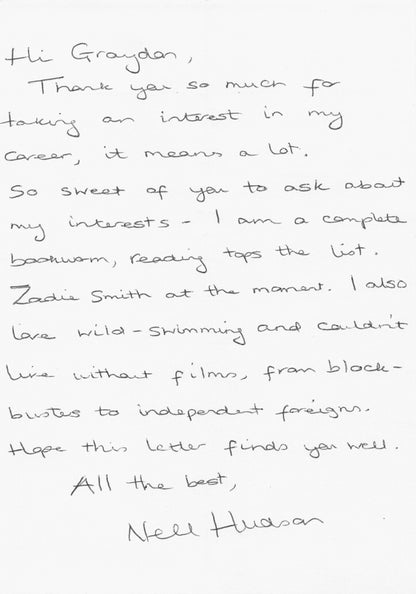 Hi Graydon,
Thank you so much for
taking an interest in my
career, it means a lot.
So sweet of you to ask about
my interests - I am a complete
bookworm, reading tops the list.
Zadie Smith at the moment. I also
love wild-swimming and couldn't
live without films, from block-
busters to independent foreigns.
Hope this letter finds you well.
All the best,
Nell Hudson